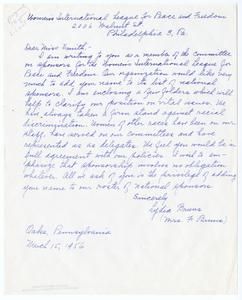 Womens International League for Peace and Freedom
2006 Walnut St.
Philadelphia 3, Pa.
Dear Miss Smith,
I am writing to you as a member of the Committee
on sponsors for the Women's International League for
Peace and Freedom. Our organization would like very
much to add your name to its list of national
sponsors. I am enclosing a few folders which will
help to clarify our position on vital issues. We
have always taken a firm stand against racial
discrimination. Women of other races have been on our
staff, have served on our committees and have
represented us as delegates. We feel you would be in
full agreement with our policies. I wish to em-
phasize that sponsorship involves no obligation
whatever. All we ask of you is the privilege of adding
your name to our roster of national sponsors.
Sincerely
Lydia Bruns
(Mrs. F. Bruns)
Oaks, Pennsylvania
March 15, 1956